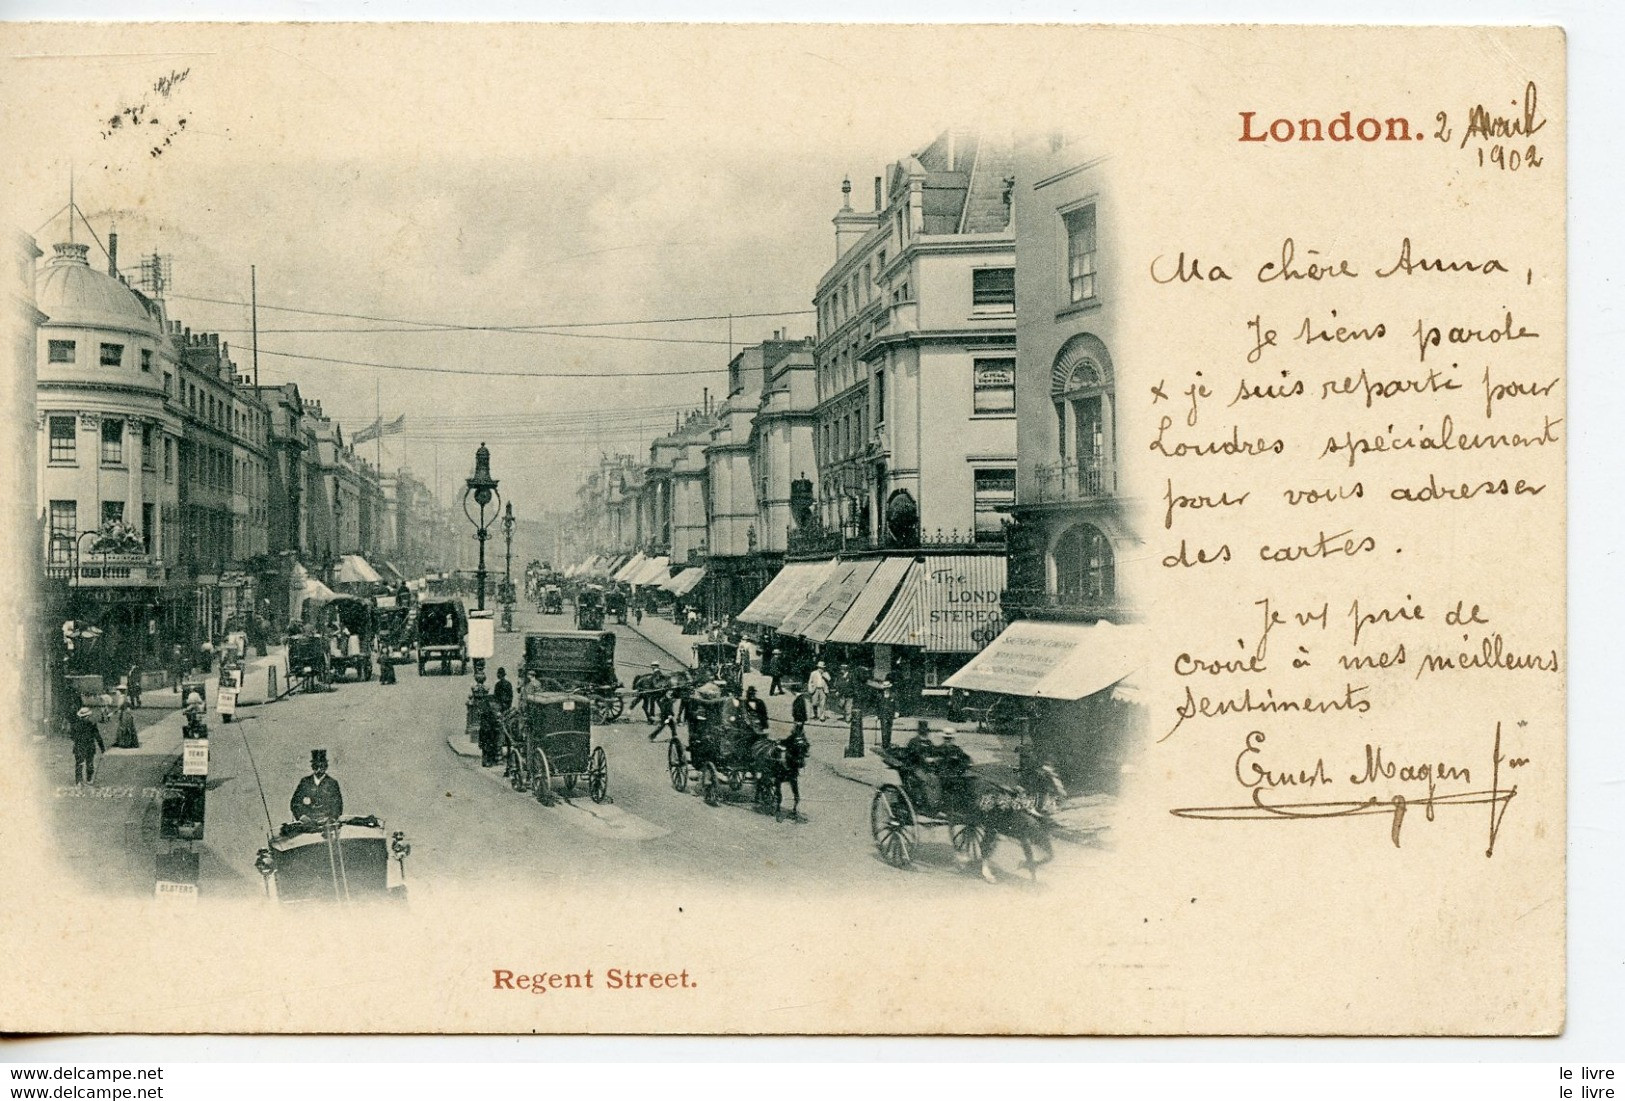 London. 2 Avril
1902
Ma chère Anna,
Je tiens parole
& je suis reparti pour
Londres spécialement
pour vous adresser
des cartes.
Je vs prie de
croire à mes meilleurs
sentiments
Ernest Magen fils
The
LONDON
STEREOS
CO
SLATERS
Regent Street.
www.delcampe.net
le livre
le livre